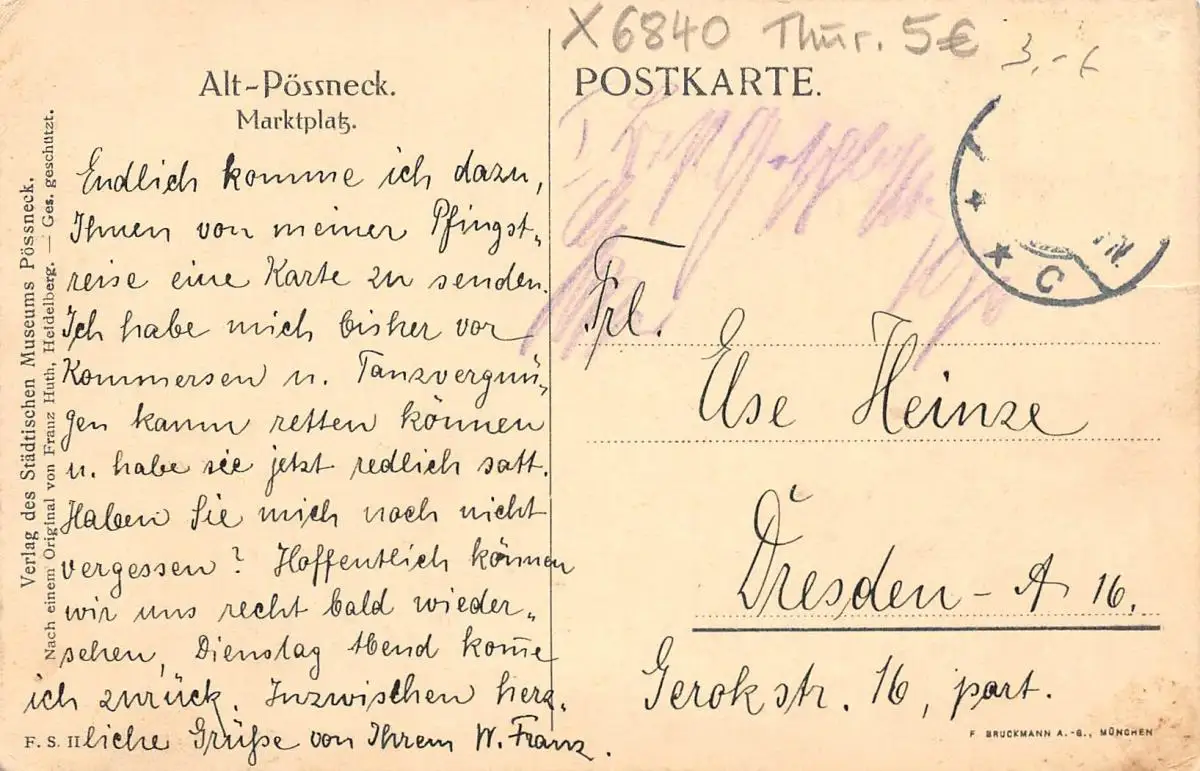 X 6840 Thür. 5€
3,- €
Alt-Pössneck.
Marktplatz.
POSTKARTE.
Verlag des Städtischen Museums Pössneck.
Nach einem Original von Franz Huth, Heidelberg. — Ges. geschützt.
Endlich komme ich dazu,
Ihnen von meiner Pfingst-
reise eine Karte zu senden.
Ich habe mich bisher vor
Kommersen u. Tanzvergnü-
gen kaum retten können
u. habe sie jetzt redlich satt.
Haben Sie mich noch nicht
vergessen? Hoffentlich können
wir uns recht bald wieder-
sehen, Dienstag Abend kom̅e
ich zurück. Inzwischen herz-
liche Grüße von Ihrem W. Franz.
F. S. II
Frl.
Else Heinze
Dresden - A 16.
Gerokstr. 16, part.
C
F BRUCKMANN A.-G., MÜNCHEN